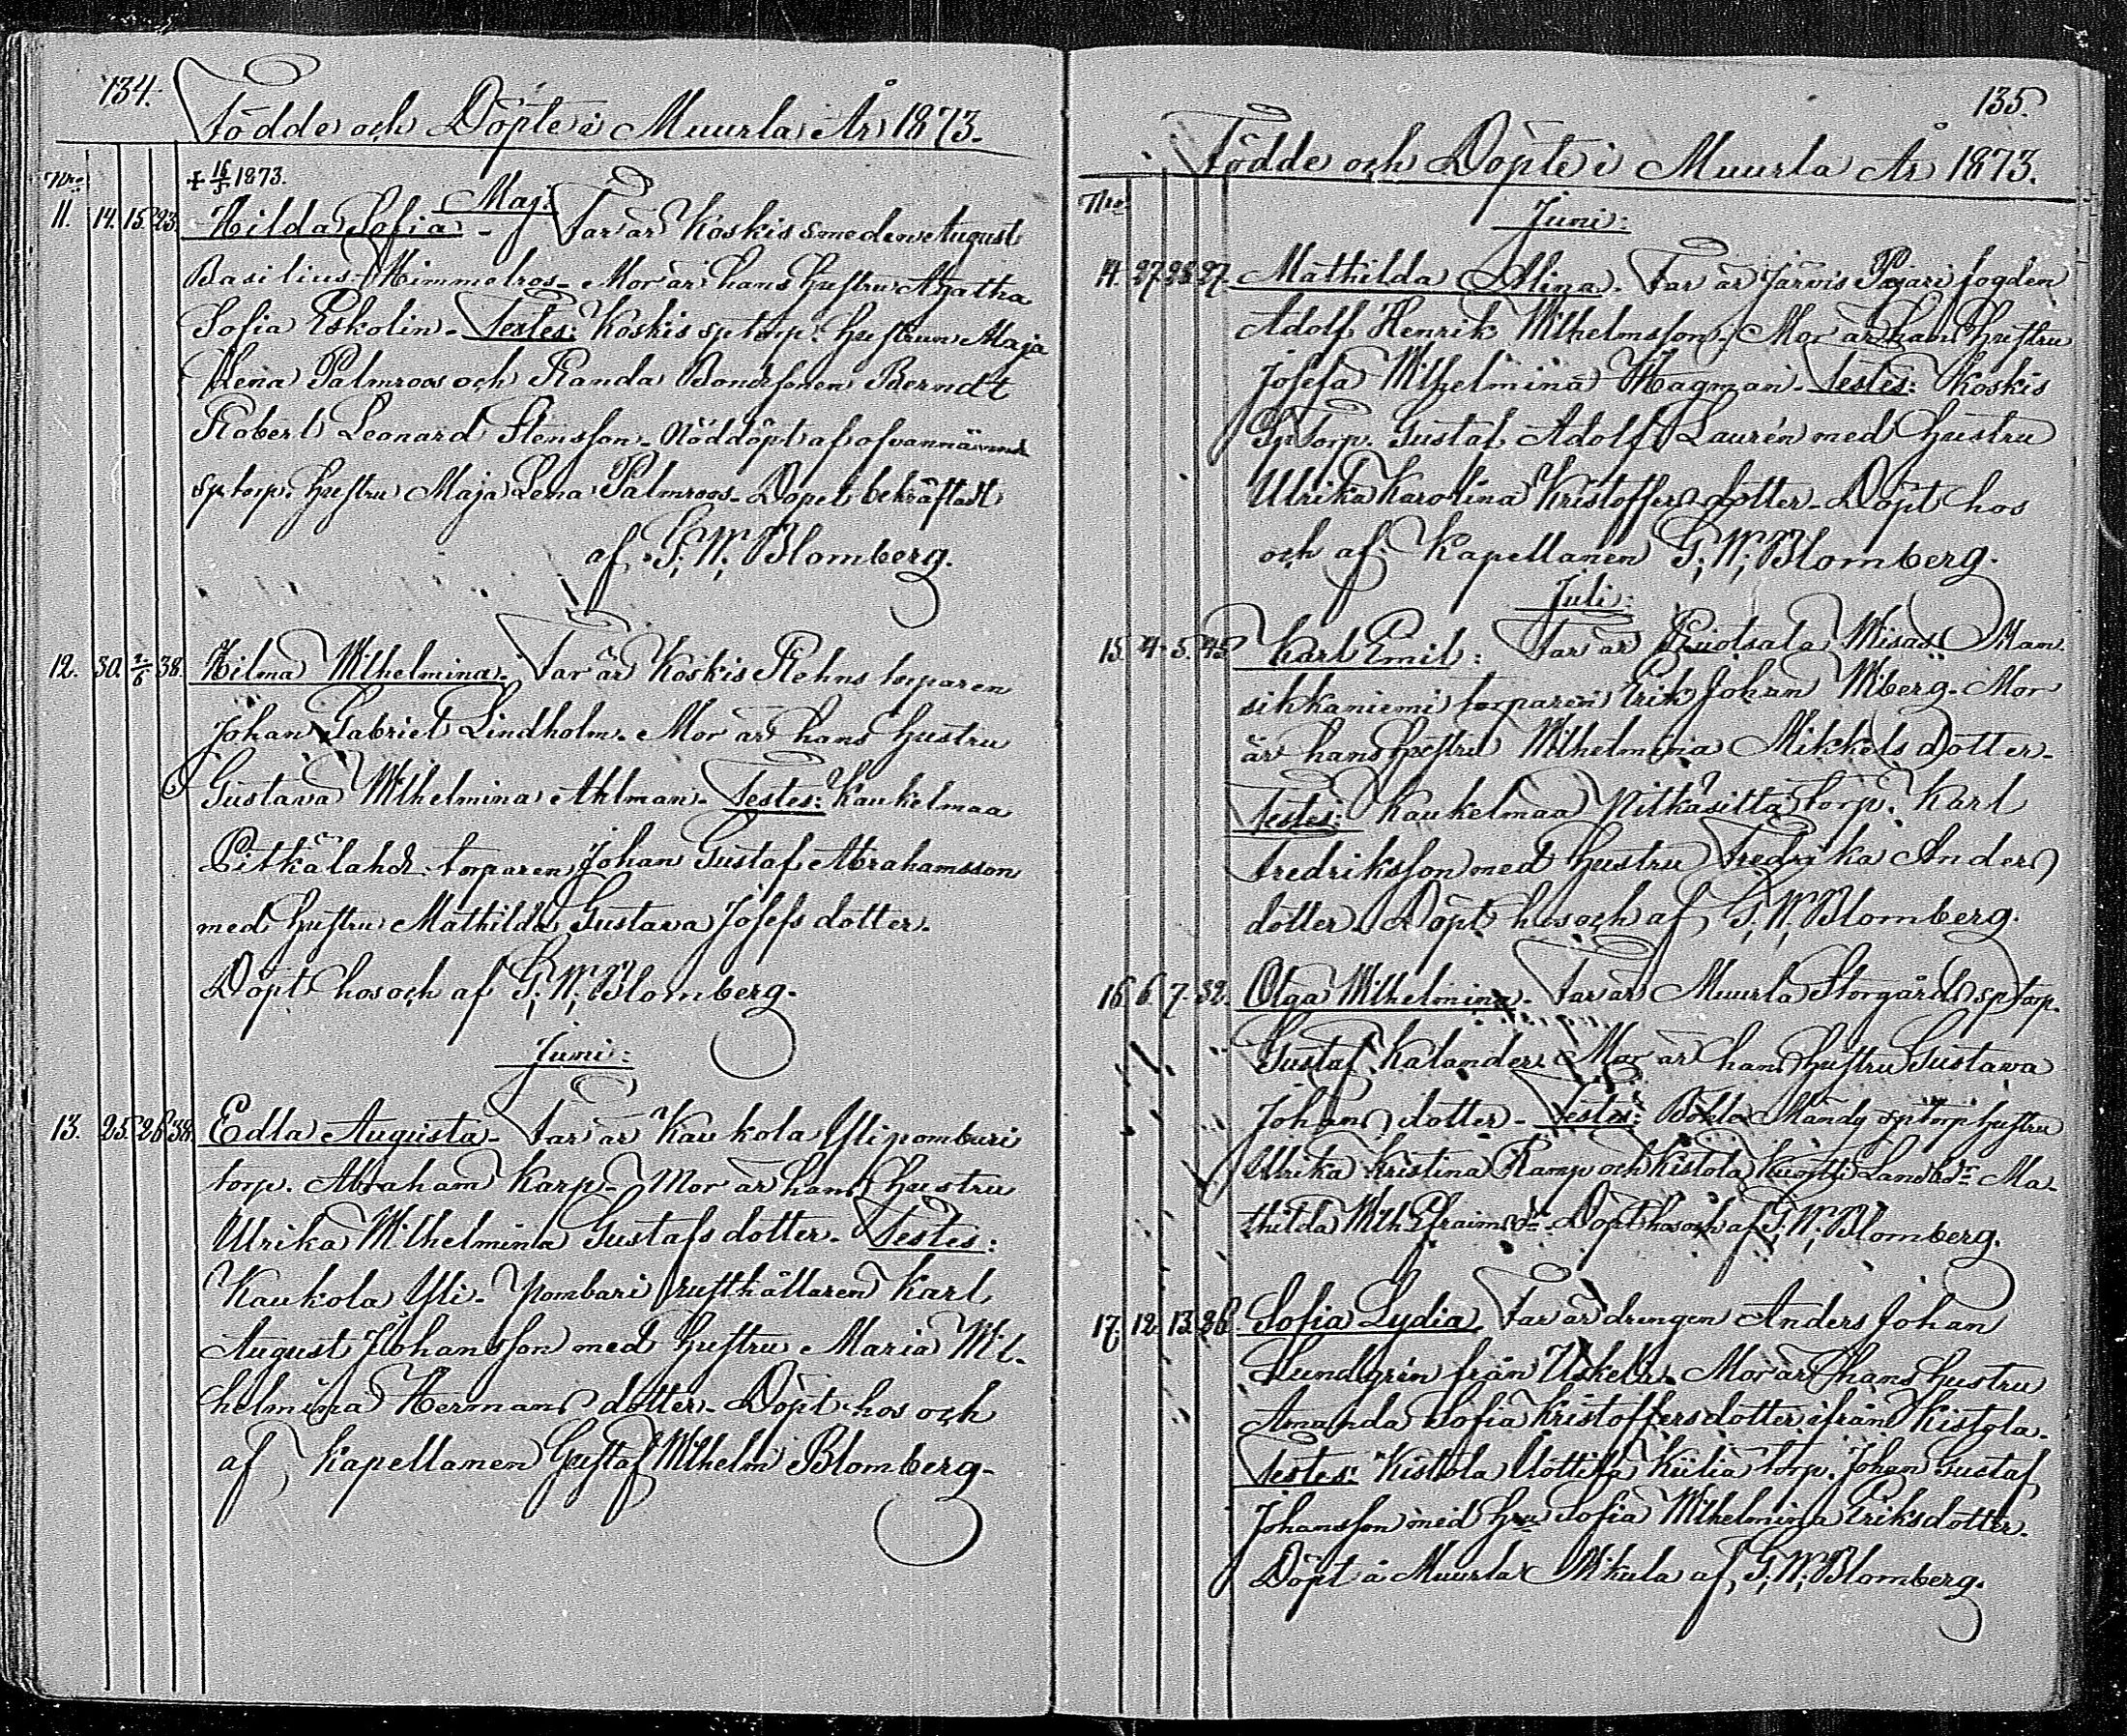 134.
Födde och Döpte i Muurla År 1873.
Nro
+ 16/5 1873.
Maj:
11. 14. 15. 23. Hilda Sofia - Far är Koskis smeden August
Basilius Himmelros - Mor är hans hustru Agatha
Sofia Eskolin - Testes: Koskis sptorp. hustrun Maja
Lena Palmroos och Randa Bondesonen Berndt
Robert Leonard Stensson - Nöddöpt af ofvannämnd
sptorp. hustru Maja Lena Palmroos - Dopet bekräftadt
af G; W; Blomberg.
12. 30. 2/6 38. Hilma Wilhelmina. Far är Koskis Rehns torparen
Johan Gabriel Lindholm. Mor är hans hustru
Gustava Wilhelmina Ahlman. Testes: Kaukelmaa
Pitkälahti torparen Johan Gustaf Abrahamsson
med hustru Mathilda Gustava Josefsdotter.
Döpt hos och af G; W; Blomberg.
Juni:
13. 25. 26 38. Edla Augusta - Far är Kaukola Ylipombari
torp. Abraham Karp - Mor är hans hustru
Ulrika Wilhelmina Gustafsdotter. Testes:
Kaukola Yli-Pombari rusthållaren Karl
August Johansson med hustru Maria Wil-
helmina Hermansdotter - Döpt hos och
af Kapellanen Gustaf Wilhelm Blomberg -
135.
Födde och Döpte i Muurla År 1873.
Nro
Juni:
14. 27. 28. 27. Mathilda Alina. Far är Järvis Pajari fogden
Adolf Henrik Wilhelmsson; Mor är hans hustru
Josefa Wilhelmina Hagman - Testes: Koskis
SpTorp. Gustaf Adolf Laurén med hustru
Ulrika Karolina Kristoffersdotter - Döpt hos
och af Kapellanen G; W; Blomberg.
Juli:
15. 4. 5. 45 Karl Emil: Far är Ruotsala Wisas Man-
sikkaniemi torparen Erik Johan Wiberg. Mor
är hans hustru Wilhelmina Mikkelsdotter.
Testes: Kaukelmaa Pitkäsilta torp. Karl
Fredriksson med hustru Fredrika Anders
dotter. Döpt hos och af G; W; Blomberg.
16 6. 7. 32. Olga Wilhelmina. Far är Muurla Storgårds sptorp.
Gustaf Kalander. Mor är hans hustru Gustava
Johansdotter - Testes: Mandy sptorp hustru
Ulrika Kristina Ramp och Kistola Kuntti Landbdr Ma-
thilda Wilh Efraimsdr. Döpt hos och af G; W; Blomberg.
17. 12. 13. 26 Sofia Lydia Far är drengen Anders Johan
Lundgrén från Uskela. Mor är hans hustru
Amanda Sofia Kristoffersdotter ifrån Kistola.
Testes: Kistola Uottila Kiilia torp. Johan Gustaf
Johansson med hru Sofia Wilhelmina Eriksdotter.
Döpt å Muurla Mikula af G; W; Blomberg.